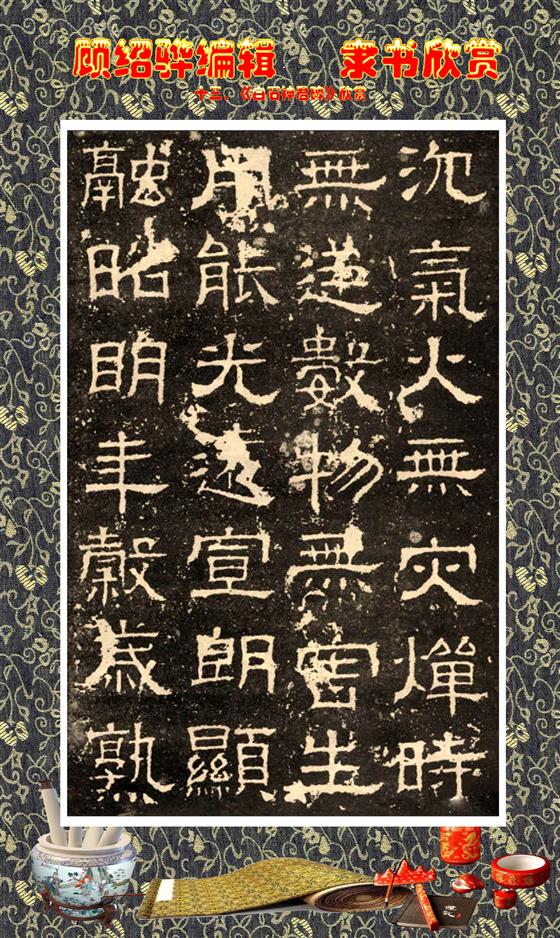 顾绍骅编辑 隶书欣赏
十三、《白石神君碑》欣赏
沴氣火無灾燀時
無逆數物無害生
用能光遠宣朗顯
融昭明年穀歲孰